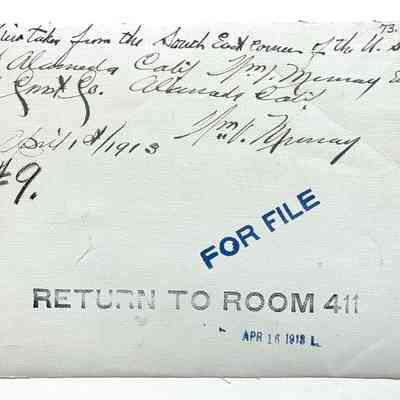 73.
View taken from the South East corner of the U.S
Alameda Calif Wm. J. Murray
Const Co. Alameda Calif
April 1st/1913 Wm. J. Murray
#9.
FOR FILE
RETURN TO ROOM 411
APR 16 1913 L.